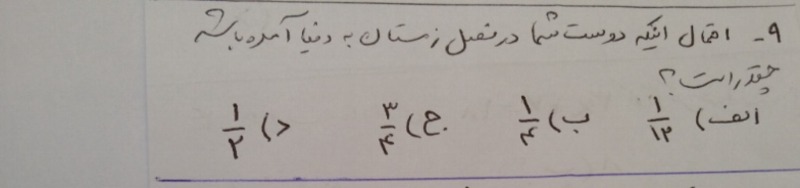 ۹- احتمال اینکه دوست شما در فصل زمستان به دنیا آمده باشد
چقدر است؟
الف) ۱/۱۲ ب) ۱/۴ ج) ۳/۴ د) ۱/۲